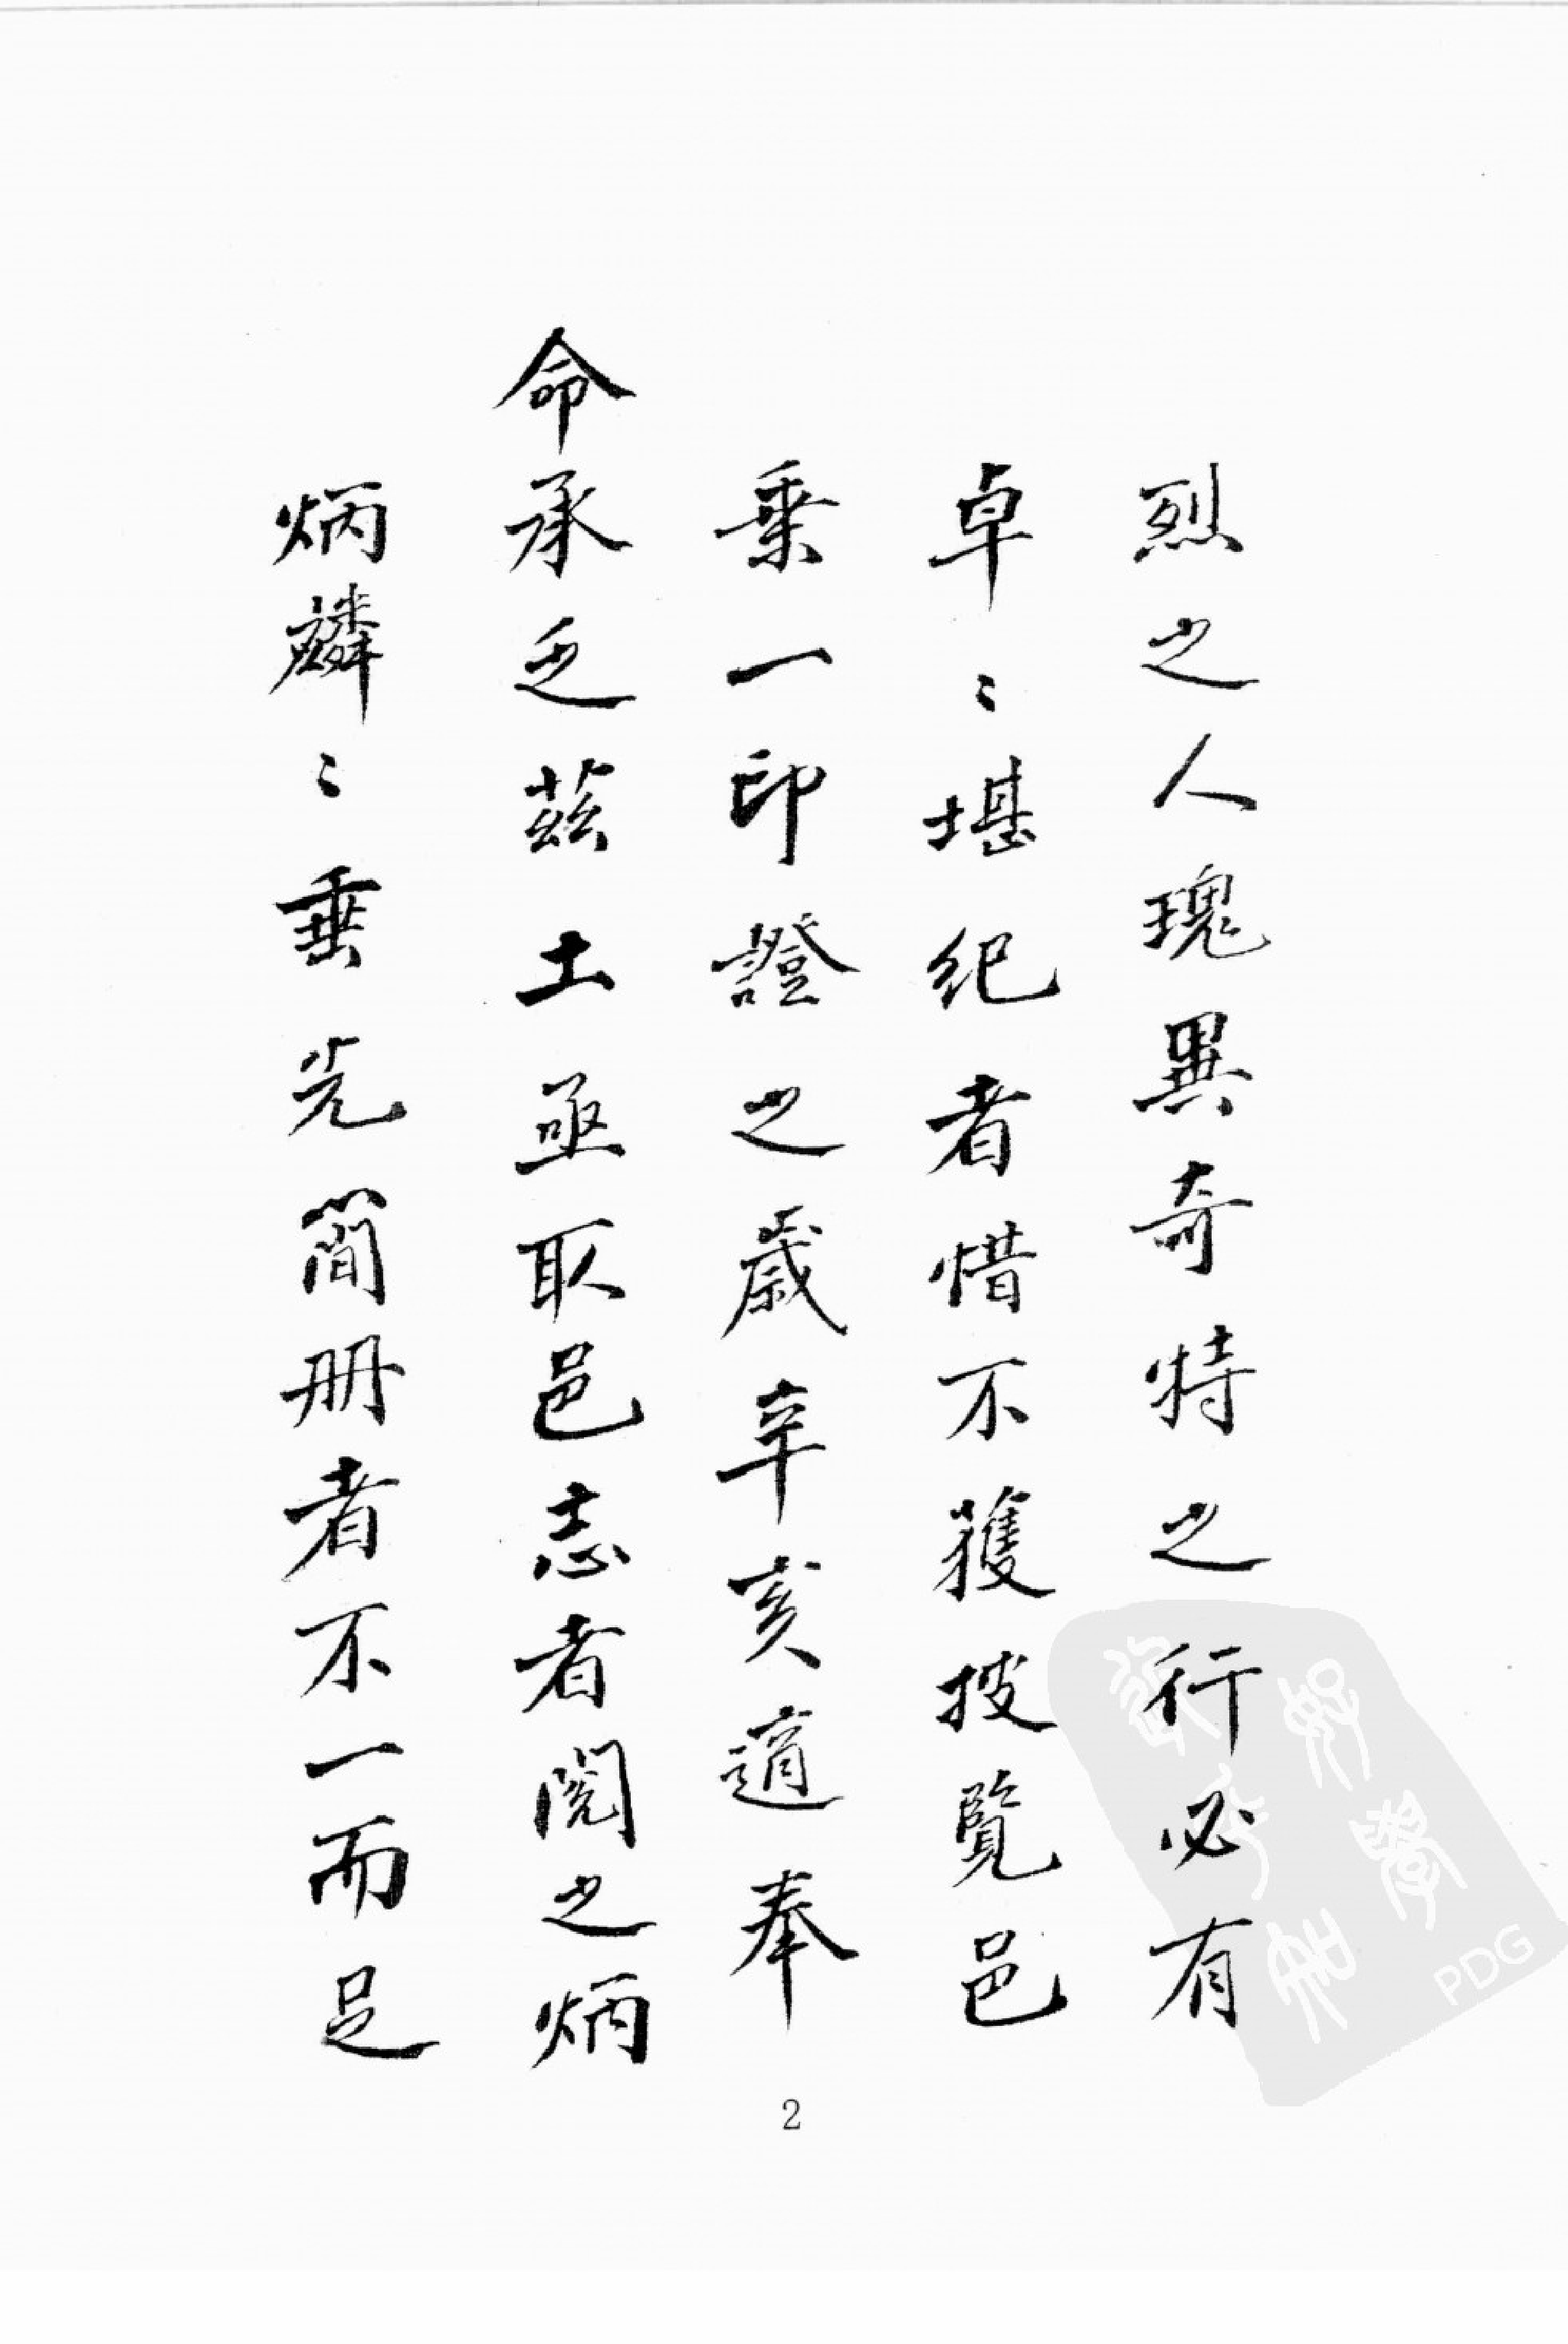 烈之人瑰異奇特之行必有
卓〻堪紀者惜不獲披覽邑
乗一印證之歲辛亥適奉
命承乏茲土亟取邑志者閱之炳
炳麟〻垂光簡册者不一而足
2
PDG